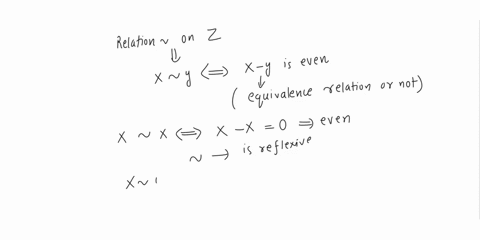 Relation ~ on Z
⇓
x ~ y ⟺ x-y is even
↓
( equivalence relation or not)
x ~ x ⟺ x - x = 0 ⟹ even
~ → is reflexive
x ~